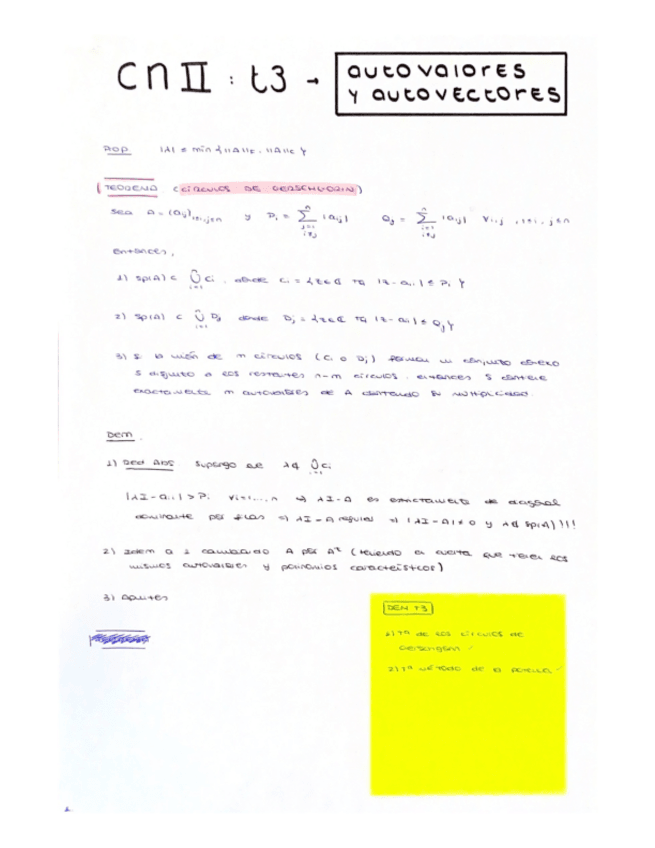 CN II : t3 → autovalores
y autovectores
Prop. |λ| ≤ min { ||A||F, ||A||C }
TEOREMA (CÍRCULOS DE GERSCHGORIN)
Sea A = (aij) 1≤i,j≤n y Pi = Σ |aij| Qj = Σ |aij| ∀i,j, 1≤i, j≤n
entonces,
1) Sp(A) ⊂ ∪ Ci, donde Ci = {z∈ℂ tq |z - aii| ≤ Pi}
2) Sp(A) ⊂ ∪ Dj donde Dj = {z∈ℂ tq |z - aii| ≤ Qj}
3) Si la unión de m círculos (Ci o Dj) forman un conjunto conexo
S disjunto a los restantes n-m círculos, entonces S contiene
exactamente m autovalores de A contando su multiplicidad.
Dem.
1) Red ABS Supongo que λ∉ ∪ Ci
|λI - aii| > Pi ∀i=1,...,n ⇒ λI - A es estrictamente de diagonal
dominante por filas ⇒ λI - A regular ⇒ |λI - A| ≠ 0 y λ∉ Sp(A) !!!
2) Idem a 1 cambiando A por At (teniendo en cuenta que tienen los
mismos autovalores y polinomios característicos)
3) Apuntes
DEM T3
1) Tª de los círculos de
Gerschgorin ✓
2) Tª método de la potencia ✓